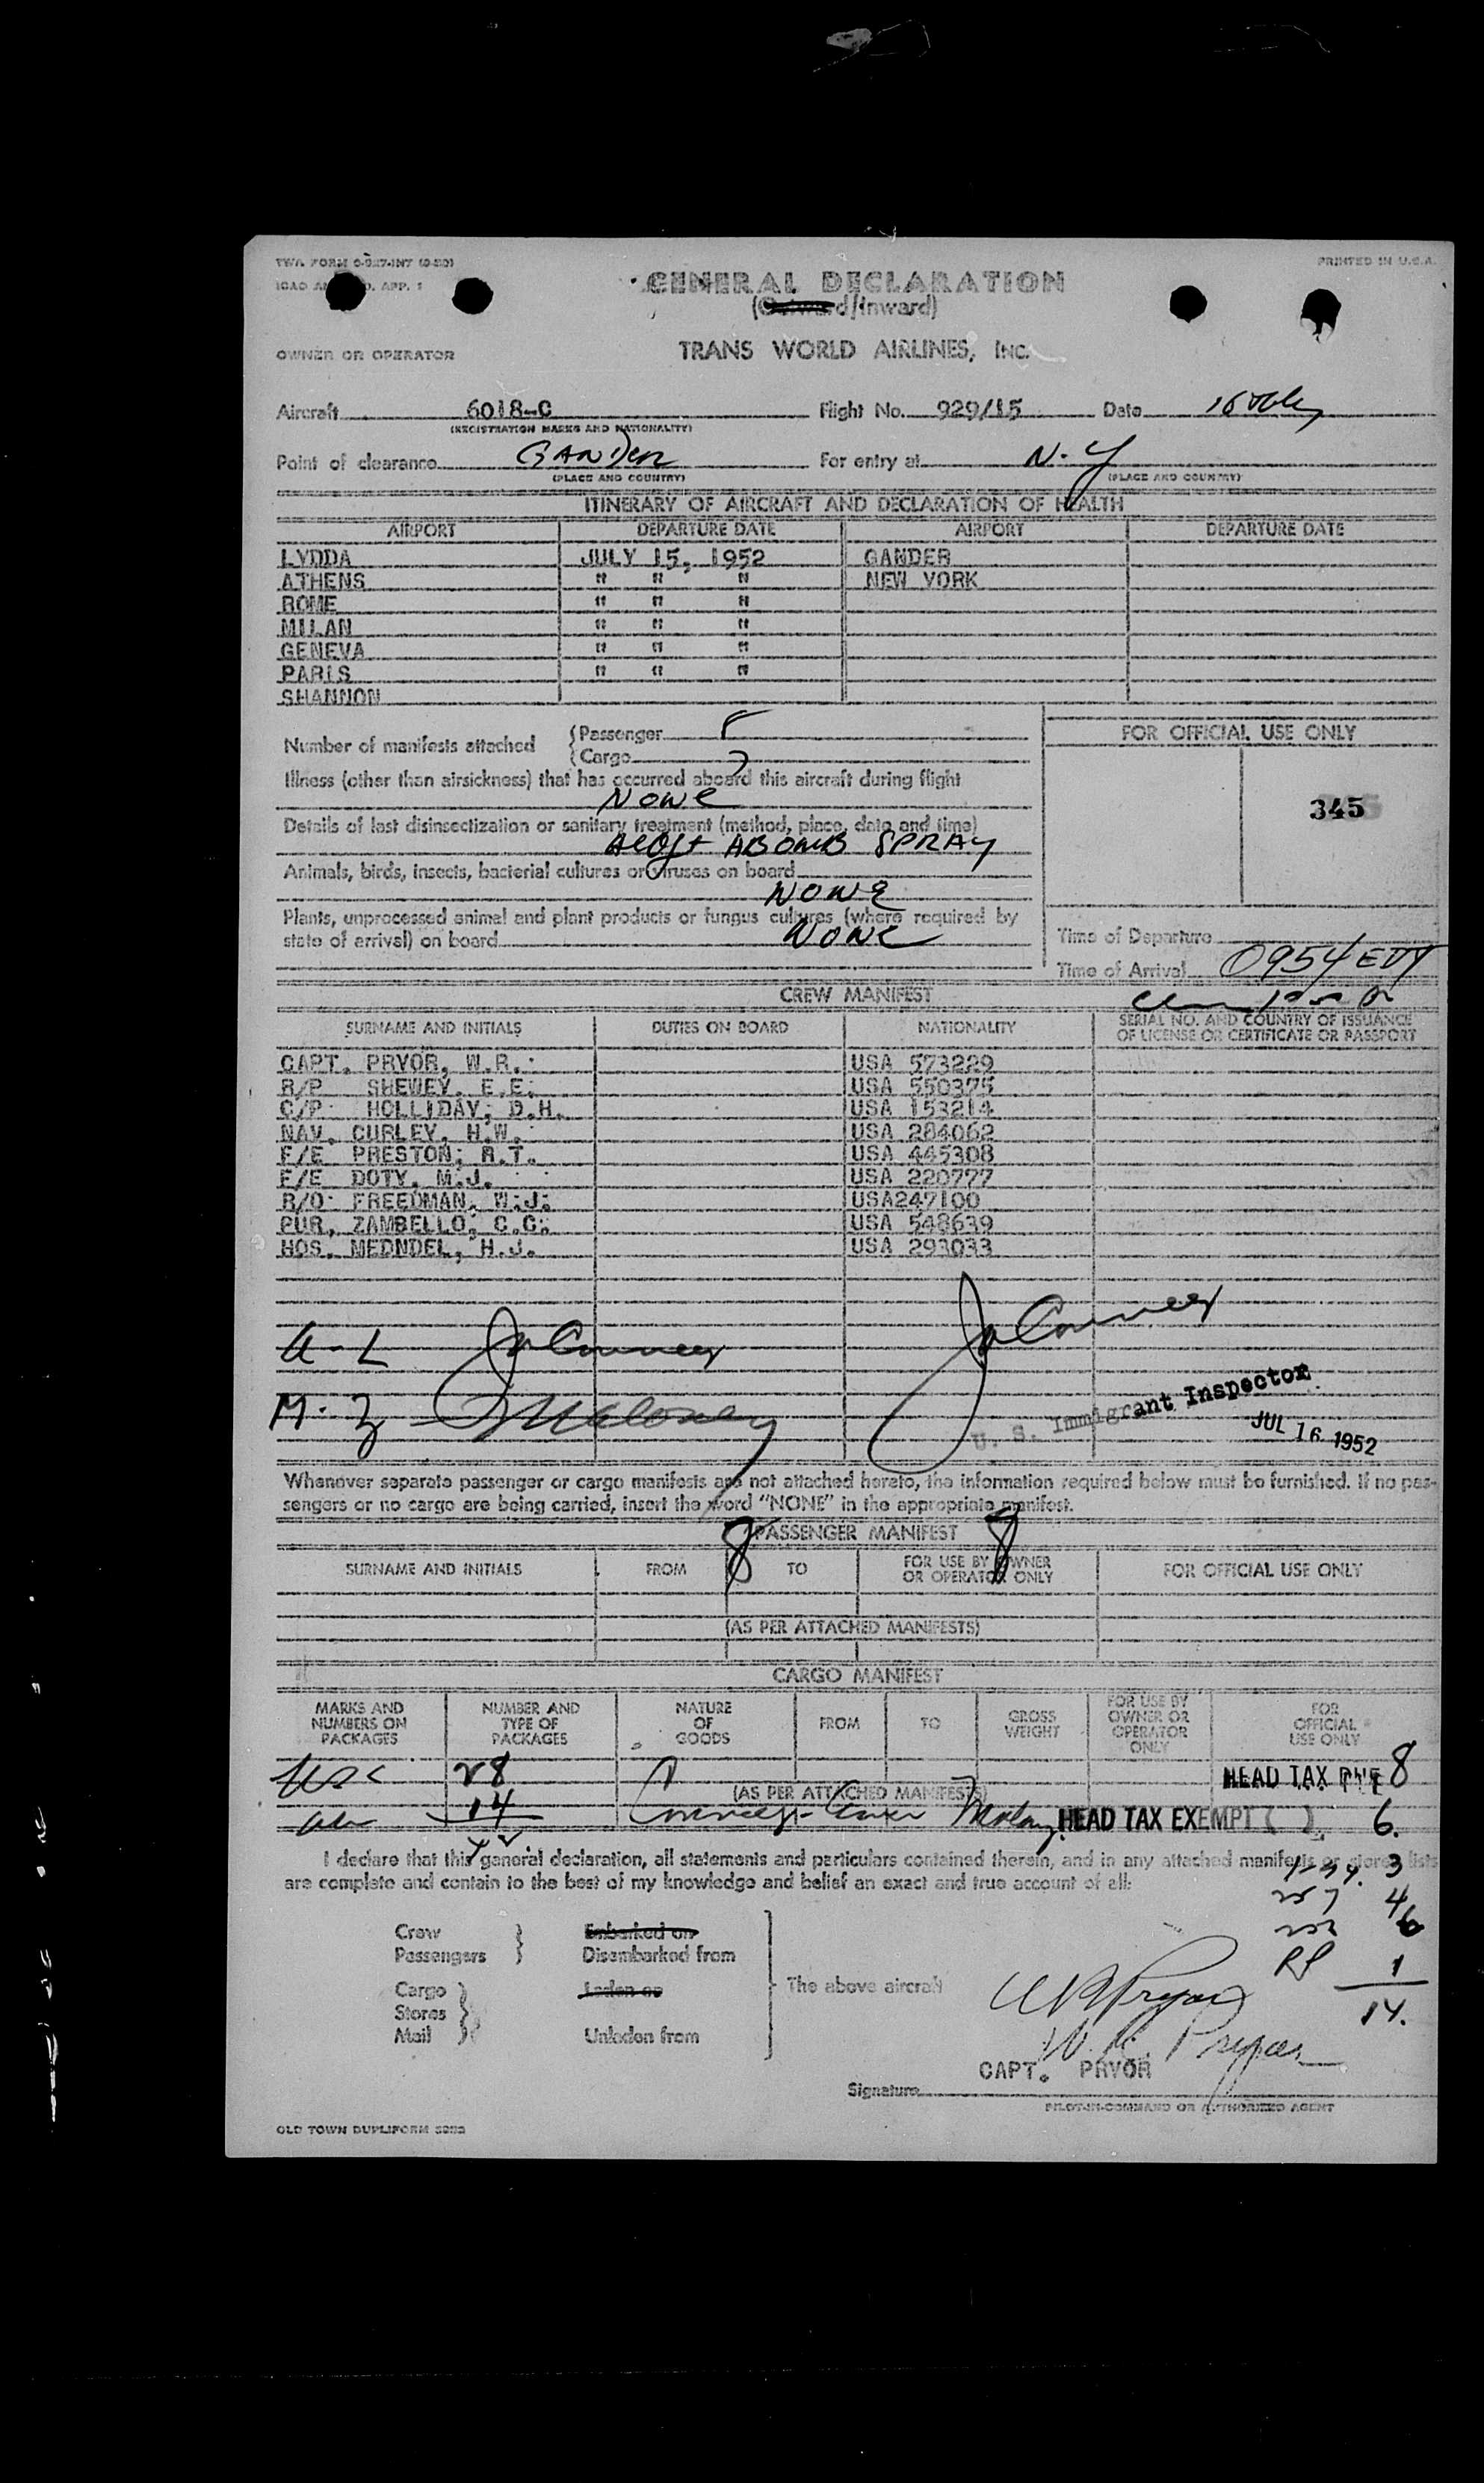 TWA FORM
PRINTED IN U.S.A.
ICAO APP. 1
GENERAL DECLARATION
(Outward/Inward)
OWNER OR OPERATOR TRANS WORLD AIRLINES, INC.
Aircraft 6018-C Flight No. 929/15 Date
(REGISTRATION MARKS AND NATIONALITY)
Point of clearance GANDER For entry at N.Y
(PLACE AND COUNTRY) (PLACE AND COUNTRY)
ITINERARY OF AIRCRAFT AND DECLARATION OF HEALTH
AIRPORT DEPARTURE DATE AIRPORT DEPARTURE DATE
LYDDA JULY 15, 1952 GANDER
ATHENS " " " NEW YORK
ROME " " "
MILAN " " "
GENEVA " " "
PARIS " " "
SHANNON
Number of manifests attached {Passenger
{Cargo
FOR OFFICIAL USE ONLY
Illness (other than airsickness) that has occurred aboard this aircraft during flight
None
345
Details of last disinsectization or sanitary treatment (method, place, date and time)
ABOMB SPRAY
Animals, birds, insects, bacterial cultures or viruses on board
NONE
Plants, unprocessed animal and plant products or fungus cultures (where required by
state of arrival) on board NONE
Time of Departure
Time of Arrival 0954 EDT
CREW MANIFEST
SURNAME AND INITIALS DUTIES ON BOARD NATIONALITY SERIAL NO. AND COUNTRY OF ISSUANCE
OF LICENSE OR CERTIFICATE OR PASSPORT
CAPT. PRYOR, W.R. USA 573229
R/P SHEWEY, E.E. USA 550375
C/P HOLLIDAY, D.H. USA 153214
NAV. CURLEY, H.W. USA 284062
F/E PRESTON, R.T. USA 445308
F/E DOTY, M.J. USA 220777
R/O FREEDMAN, W.J. USA247100
PUR. ZAMBELLO, C.G. USA 548639
HOS. MEDNDEL, H.J. USA 293033
U. S. Immigrant Inspector
JUL 16 1952
Whenever separate passenger or cargo manifests are not attached hereto, the information required below must be furnished. If no pas-
sengers or no cargo are being carried, insert the word "NONE" in the appropriate manifest.
8 PASSENGER MANIFEST 8
SURNAME AND INITIALS FROM TO FOR USE BY OWNER
OR OPERATOR ONLY FOR OFFICIAL USE ONLY
(AS PER ATTACHED MANIFESTS)
CARGO MANIFEST
MARKS AND
NUMBERS ON
PACKAGES
NUMBER AND
TYPE OF
PACKAGES
NATURE
OF
GOODS
FROM TO GROSS
WEIGHT
FOR USE BY
OWNER OR
OPERATOR
ONLY
FOR
OFFICIAL
USE ONLY
28 HEAD TAX DUE 8
(AS PER ATTACHED MANIFESTS)
14 HEAD TAX EXEMPT ( ) 6.
I declare that this general declaration, all statements and particulars contained therein, and in any attached manifests or stores lists
are complete and contain to the best of my knowledge and belief an exact and true account of all:
3
4
6
1
14.
Crew } Embarked on
Passengers } Disembarked from
Cargo } Laden on
Stores }
Mail } Unladen from
The above aircraft
W. R. Pryor
CAPT. PRYOR
Signature
PILOT-IN-COMMAND OR AUTHORIZED AGENT
OLD TOWN DUPLIFORM